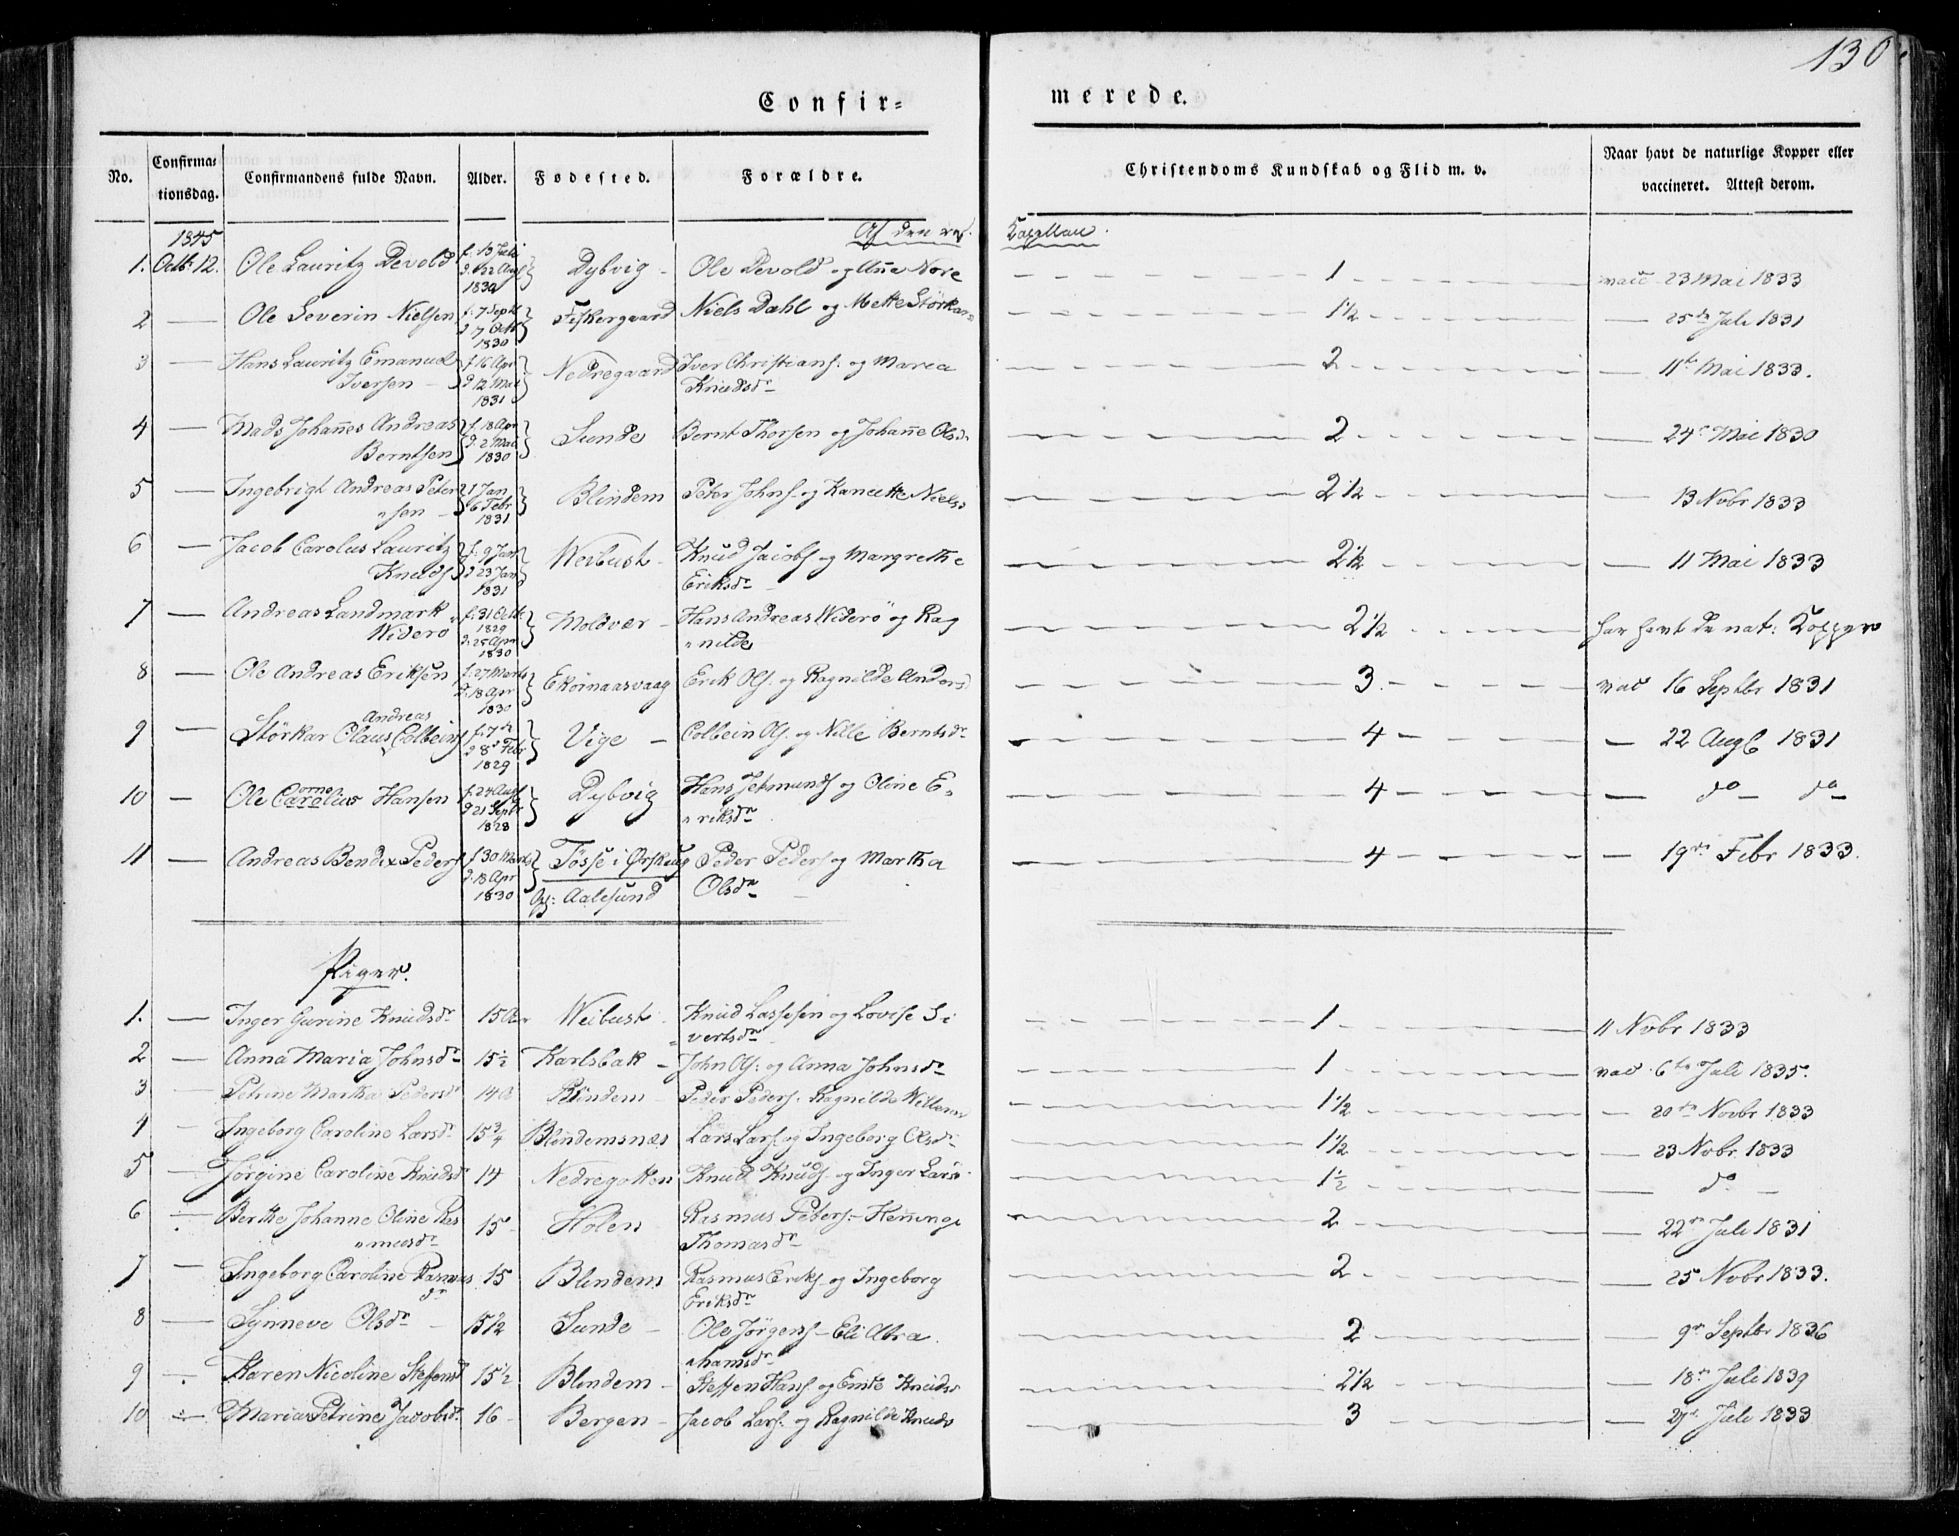 130.
Confir= merede.
No. Confirma= tionsdag. Confirmandens fulde Navn. Alder. Fødested. Forældre. Christendoms Kundskab og Flid m. v. Naar havt de naturlige Kopper eller vaccineret. Attest derom.
1845 Af den res. Kapellan.
1. Octb. 12. Ole Lauritz Devold f. 13 Juli d. 22 Aug 1830 Dybvig Ole Devold og Anne Nore 1 vacc 23 Mai 1833
2 — Ole Severin Nielsen f. 7 Sept d. 7 Octb 1830 Fiskergaard Niels Dahl og Mette Størkars 1½ — 25de Juli 1831
3 — Hans Lauritz Emanuel Iversen f. 16 Apr d. 12 Mai 1831 Nedregaard Iver Christians. og Maria Knudsdr 2 — 11te Mai 1833.
4 — Mads Johannes Andreas Berntsen f. 18 Apr d. 2 Mai 1830 Sunde Bernt Thorsen og Johanne Olsdr 2 — 24de Mai 1830
5 — Ingebrigt Andreas Peter „sen 1 Jan 6 Febr 1831 Blindem Peter Johns. og Kanutte Niels 2½ — 13 Nobr 1833
6 — Jacob Carolus Lauritz Knuds. f. 9 Jan d. 23 Jan 1831 Weibust Knud Jacobs. og Margrethe Eriksdr 2½ — 11 Mai 1833
7 — Andreas Landmark Widerø f. 31 Octb 1829 d. 25 Apr 1830 Moldvær Hans Andreas Widerø og Rag „nilde 2½ har havt de nat: Kopper
8 — Ole Andreas Eriksen f. 27 Marts d. 18 Apr 1830 Ekornaasvaag Erik Ols. og Ragnilde Anders 3. vac 16 Septbr 1831
9 — Størkar Claus Andreas Colbeins. f. 7de d. 8de Febr 1829 Vige Colbein Ols. og Nille Berntsdr 4 — 22 Aug 1831
10 — Ole Carolius Hansen f. 24 Aug d. 21 Septb 1828 Dybvig Hans Jetmunds. og Oline E= „riksdr 4 — do — do
11 — Andreas Bendix Peders. f. 30 Marts d. 18 Apr 1830 Tøsse i Ørskoug Op: Aalesund Peder Peders. og Martha Olsdr 4 — 19de Febr 1833.
Piger.
1. — Inger Gurine Knudsdr 15 Aar Weibust Knud Lassesen og Lovise Si „vertsdr 1 11 Nobr 1833
2 — Anna Maria Johnsdr 15½ Karlsbak John Ols: og Anna Johnsdr 1 vac 6te Juli 1835.
3 — Petrine Martha Pedersdr 14 A Blindem Peder Peders. Ragnilde Willems 1½ — 20de Novbr 1833
4 — Ingeborg Caroline Larsdr 15¾ Blindemsnæs Lars Lars. og Ingeborg Olsdr 1½ — 23 Nobr 1833
5 — Jørgine Caroline Knudsdr 14 Nedregotten Knud Knuds. og Inger Larsdr 1½ — do —
6 — Berthe Johanne Oline Ras „musdr 15 Holen Rasmus Peders: Henninge Thomasdr 2 — 22de Juli 1831
7 — Ingeborg Caroline Rasmus dr 15 Blindem Rasmus Eriks. og Ingeborg Eriksdr 2 — 25 Nobr 1833.
8 — Synneve Olsdr 15½ Sunde Ole Jørgens. Eli Abra „hamsdr 2 — 9de Septbr 1836
9 — Karen Nicoline Steffensd 15½ Blindem Steffen Hans. og Emte Knudsdr 2½ — 18de Juli 1839
10 — Maria Petrine Jacobsdr. 16 Bergen Jacob Lars. og Ragnilde Knuds 3 — 27de Juli 1833